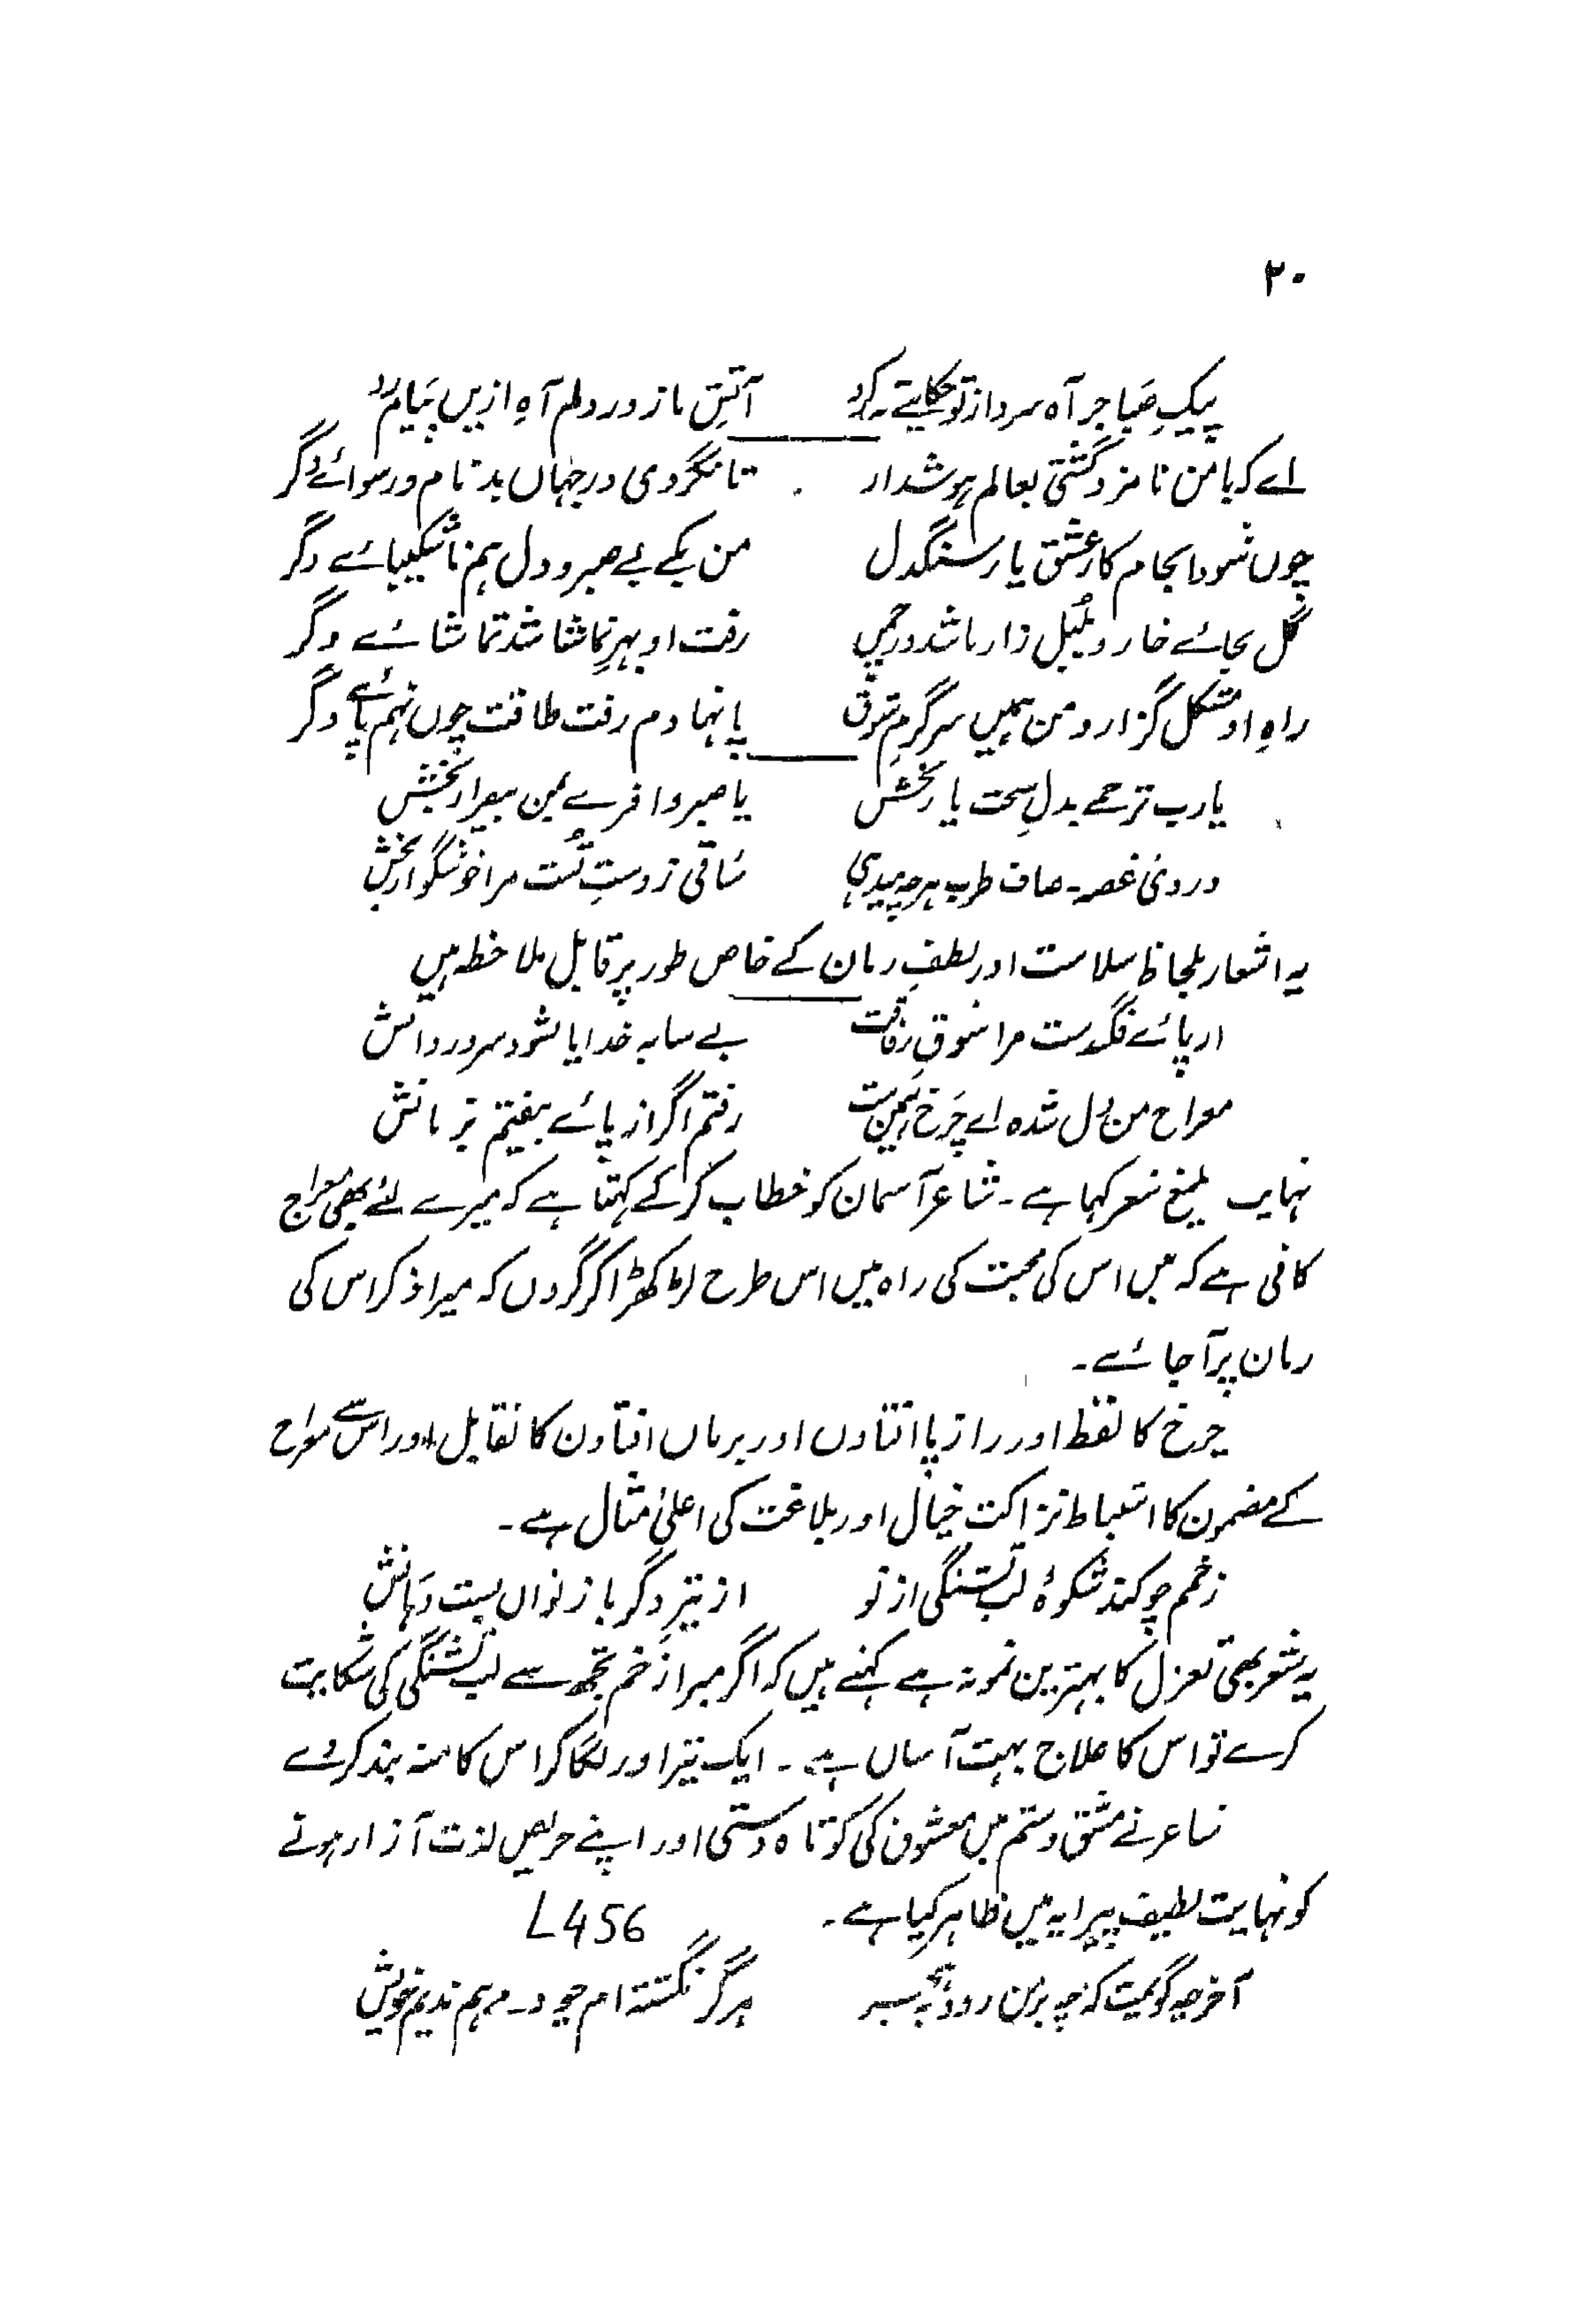 ۲۰
پیکِ صبا جز آہ سرد از تو حکایتے نکرد آتشِ ما زد در دلم آہ ازیں پیام سرد
اے کہ با من نامزد گشتی بعالم ہوشدار تا نگردی در جہاں بدنام و رسوائے دگر
چوں شود انجام کار عشق یار سنگدل من یکے بے صبر و دل ہم ناشکیبائے دگر
گل بجائے خار و بلبل زار باشد در چمن رفت او بہرِ تماشا شد تماشائے دگر
راہِ او مشکل گزار و من ہمیں سرگرمِ شوق پا نہادم رفت طاقت چوں نہم پائے دگر
یا رب ترحمے بدلِ سخت یار بخش یا صبر وافرے بمن بیقرار بخش
دردیٔ غصہ۔ صاف طرب ہرچہ میدہی ساقی ز دستِ تست مرا خوشگوار بخش
یہ اشعار بلحاظ سلاست اور لطفِ زبان کے خاص طور پر قابل ملاحظہ ہیں
از پائے فگندست مرا شوقِ رفاقت بے سایہ خدایا نشود سرو روانش
معراج من دل شدہ اے چرخ ہمین ست رفتم اگر از پائے بیفتم بزبانش
نہایت بلیغ شعر کہا ہے۔ شاعر آسمان کو خطاب کرکے کہتا ہے کہ میرے لئے یہی معراج
کافی ہے کہ میں اس کی محبت کی راہ میں اس طرح لڑکھڑا کر گروں کہ میرا ذکر اس کی
زبان پر آجائے۔
چرخ کا لفظ اور از پا افتادن اور بزباں افتادن کا تقابل اور اس سے معراج
کے مضمون کا استنباط نزاکت خیال اور بلاغت کی اعلیٰ مثال ہے۔
زخمم چو کند شکوۂ لب تشنگی از تو از تیرِ دگر باز تواں بست دہانش
یہ شعر بھی تغزل کا بہترین نمونہ ہے کہتے ہیں کہ اگر میرا زخم تجھ سے لب تشنگی کی شکایت
کرے تو اس کا علاج بہت آساں ہے۔ ایک تیر اور لگا کر اس کا منہ بند کردے
شاعر نے مشق و ستم میں معشوق کی کوتاہ دستی اور اپنے حریص لذت آزار ہونے
کو نہایت لطیف پیرایہ میں ظاہر کیا ہے۔ L456
آخر چہ گویمت کہ چہ بر من رود ہرگز نگشتہ ام چو ہم ندیم خویش